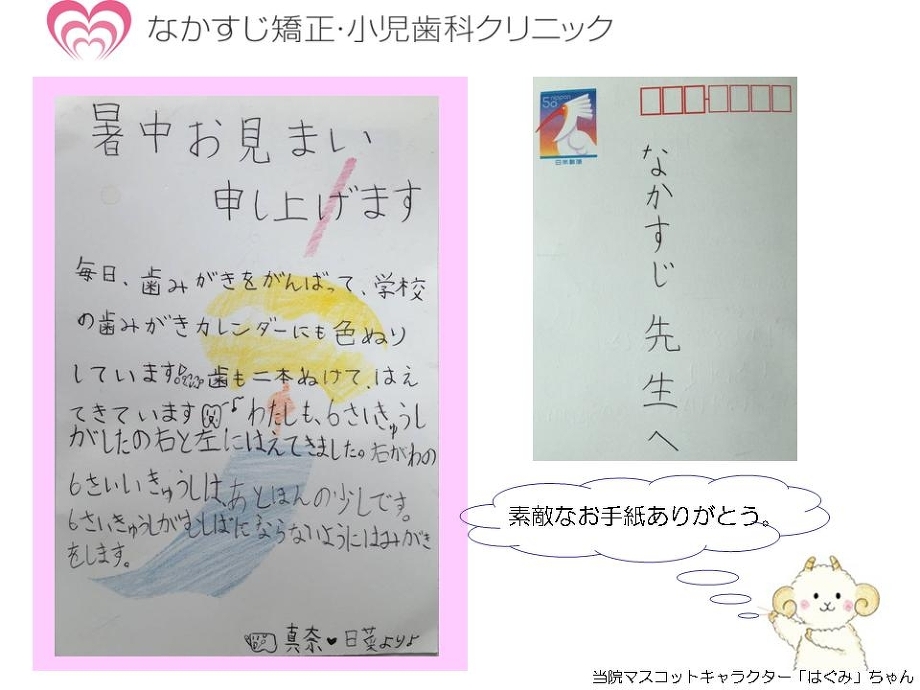 なかすじ矯正・小児歯科クリニック
暑中お見まい
申し上げます
毎日、歯みがきをがんばって、学校
の歯みがきカレンダーにも色ぬり
しています
歯も二本ぬけて、はえ
てきています
わたしも、6さいきゅうし
がしたの右と左にはえてきました。右がわの
6さいいきゅうしは、あとほんの少しです。
6さいきゅうしがむしばにならないようにはみがき
をします。
真奈♥日菜より♪
58
日本郵便
なかすじ 先生へ
素敵なお手紙ありがとう。
当院マスコットキャラクター「はぐみ」ちゃん